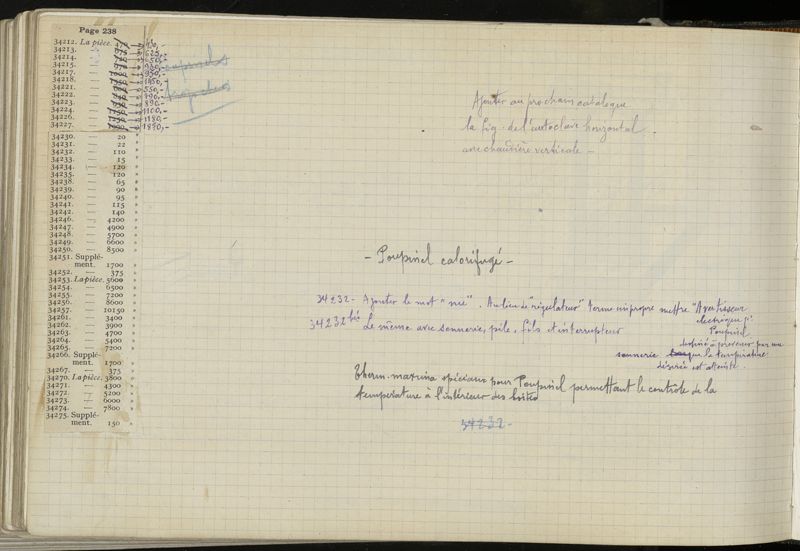 Page 238
34212. La pièce.
34213. — 625,-
34214. —
34215. —
34217. — 950,-
34218. —
34221. — 550,-
34222. — 790,-
34223. — 890-
34224. — 1100,-
34226. — 1180,-
34227. — 1890,-
34230. — 20 »
34231. — 22 »
34232. — 110 »
34233. — 15 »
34234. — 120 »
34235. — 120 »
34238. — 65 »
34239. — 90 »
34240. — 95 »
34241. — 115 »
34242. — 140 »
34246. — 4200 »
34247. — 4900 »
34248. — 5700 »
34249. — 6600 »
34250. — 8500 »
34251. Supplé-
ment. 1700 »
34252. — 375 »
34253. La pièce. 5600 »
34254. — 6500 »
34255. — 7200 »
34256. — 8600 »
34257. — 10150 »
34261. — 3400 »
34262. — 3900 »
34263. — 4700 »
34264. — 5400 »
34265. — 7200 »
34266. Supplé-
ment. 1700 »
34267. — 375 »
34270. La pièce. 3800 »
34271. — 4300 »
34272. — 5200 »
34273. — 6000 »
34274. — 7800 »
34275. Supplé-
ment. 150 »
Ajouter au prochain catalogue
la fig. de l'autoclave horizontal
avec chaudière verticale —
— Poupinel calorifugé —
34232 - Ajouter le mot "nu". Au lieu de "régulateur" terme impropre mettre "Avertisseur
électrique pr
Poupinel
34232 bis Le même avec sonnerie, pile, fils et interrupteur
destiné à prévenir par une
sonnerie que la température
désirée est atteinte.
Therm. maxima spéciaux pour Poupinel permettant le contrôle de la
température à l'intérieur des boîtes
34232-